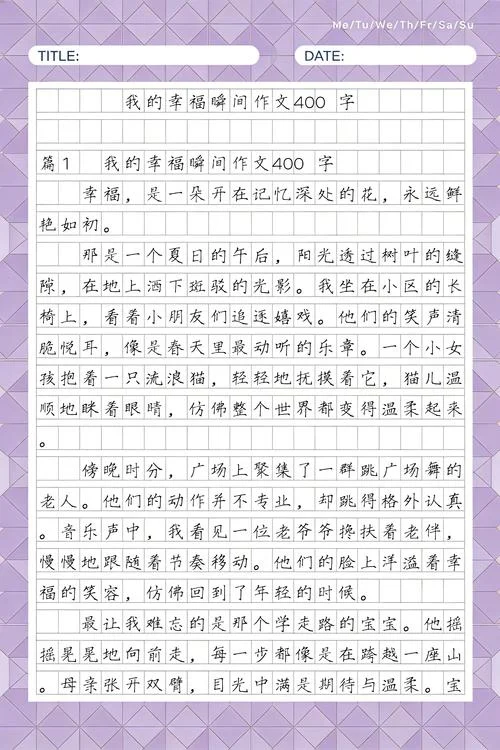 Me/Tu/We/Th/Fr/Sa/Su
TITLE: DATE:
我的幸福瞬间作文400 字
篇1 我的幸福瞬间作文400 字
幸福，是一朵开在记忆深处的花，永远鲜
艳如初。
那是一个夏日的午后，阳光透过树叶的缝
隙，在地上洒下斑驳的光影。我坐在小区的长
椅上，看着小朋友们追逐嬉戏。他们的笑声清
脆悦耳，像是春天里最动听的乐章。一个小女
孩抱着一只流浪猫，轻轻地抚摸着它，猫儿温
顺地眯着眼睛，仿佛整个世界都变得温柔起来
。
傍晚时分，广场上聚集了一群跳广场舞的
老人。他们的动作并不专业，却跳得格外认真
。音乐声中，我看见一位老爷爷搀扶着老伴，
慢慢地跟随着节奏移动。他们的脸上洋溢着幸
福的笑容，仿佛回到了年轻的时候。
最让我难忘的是那个学走路的宝宝。他摇
摇晃晃地向前走，每一步都像是在跨越一座山
。母亲张开双臂，目光中满是期待与温柔。宝